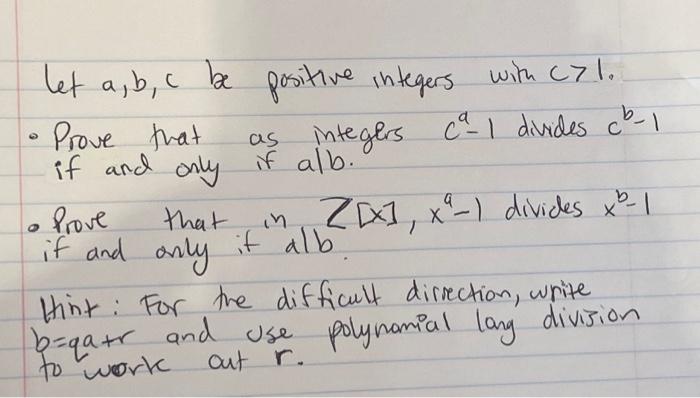 let a, b, c be positive integers with c>1.
• Prove that as integers c^a-1 divides c^b-1
if and only if a|b.
• Prove that in Z[x], x^a-1 divides x^b-1
if and only if a|b.
Hint: For the difficult dirrection, write
b=qa+r and use polynomial long division
to work out r.